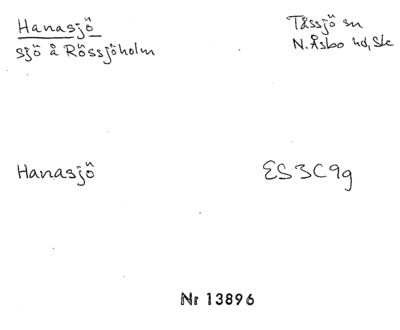 Hanasjö
sjö å Rössjöholm
Tåssjö sn
N. Åsbo hd, Sk
Hanasjö
ES3C9g
Nr 13896